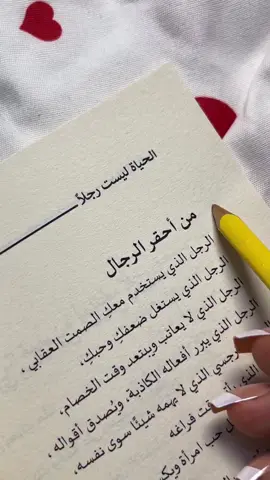 الحياة ليست رجلاً
من أحقر الرجال
الرجل الذي يستخدم معكِ الصمت العقابي ،
الرجل الذي يستغل ضعفكِ وحبكِ،
الرجل الذي لا يعاتب ويبتعد وقت الخصام,
الرجل الذي يبرر أفعاله الكاذبة، ويُصدق أقواله ،
النرجسي الذي لا يهمه شيئًا سوى نفسه،
وقت فراغه
حب امرأة